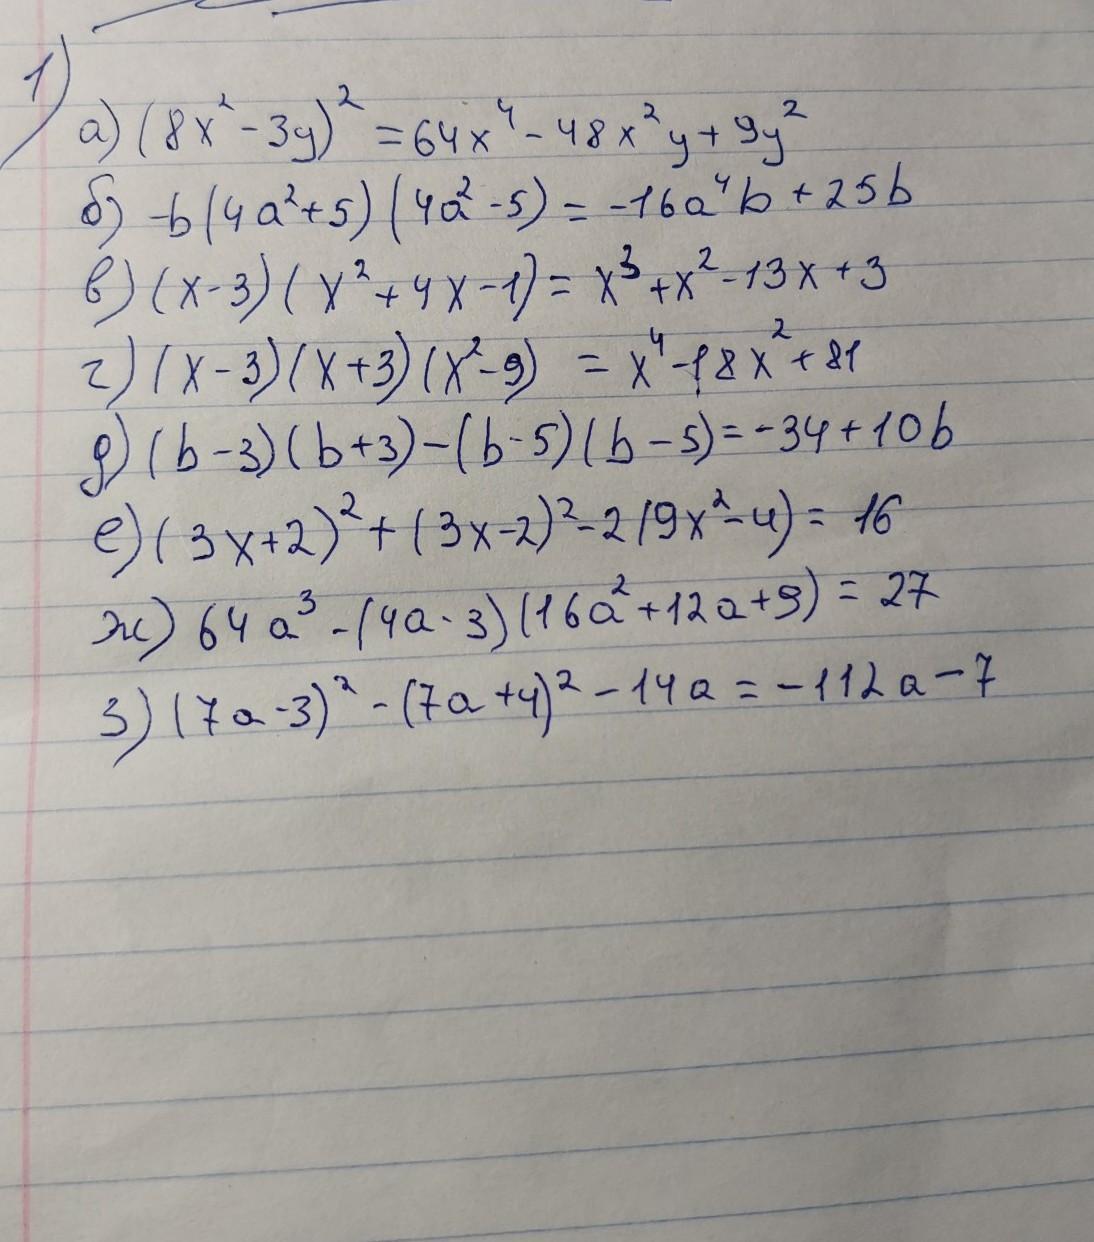 1)
а) (8x² - 3y)² = 64x⁴ - 48x²y + 9y²
б) -b(4a² + 5)(4a² - 5) = -16a⁴b + 25b
в) (x - 3)(x² + 4x - 1) = x³ + x² - 13x + 3
г) (x - 3)(x + 3)(x² - 9) = x⁴ - 18x² + 81
д) (b - 3)(b + 3) - (b - 5)(b - 5) = -34 + 10b
е) (3x + 2)² + (3x - 2)² - 2(9x² - 4) = 16
ж) 64a³ - (4a - 3)(16a² + 12a + 9) = 27
з) (7a - 3)² - (7a + 4)² - 14a = -112a - 7